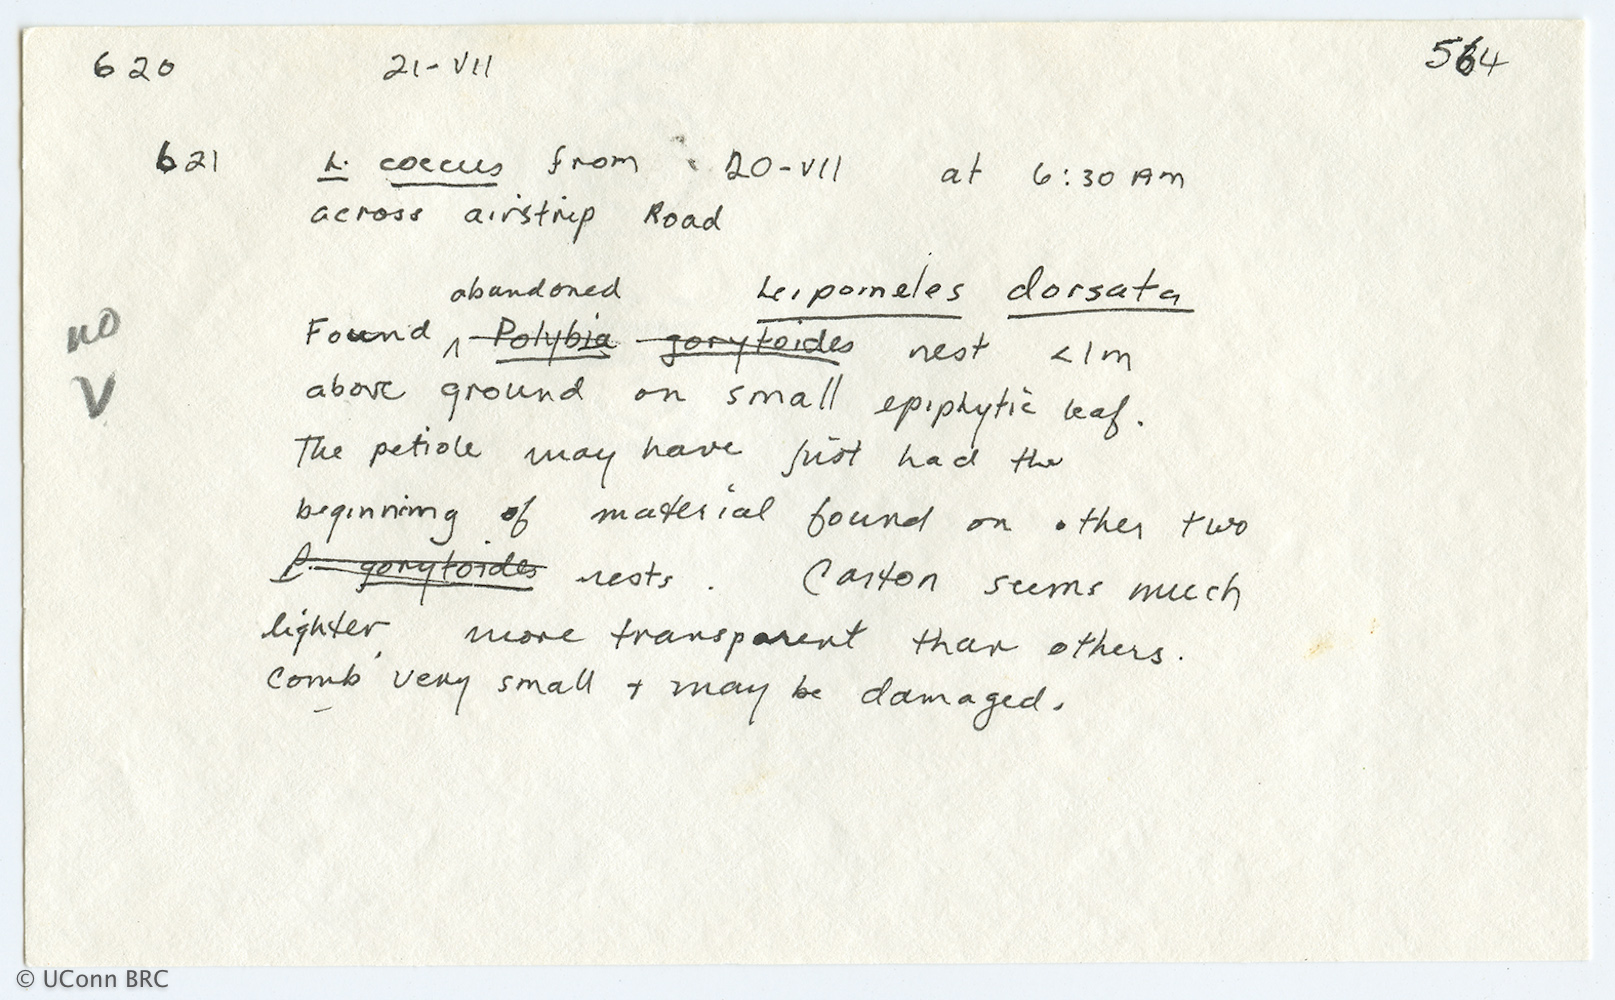 620 21-VII 564
621 L. coecus from 20-VII at 6:30 Am
across airstrip Road
abandoned Leipomeles dorsata
Found ^ Polybia gorytoides nest <1m
no
above ground on small epiphytic leaf.
V
The petiole may have just had the
beginning of material found on other two
P. gorytoides nests. Carton seems much
lighter, more transparent than others.
Comb very small + may be damaged.
© UConn BRC